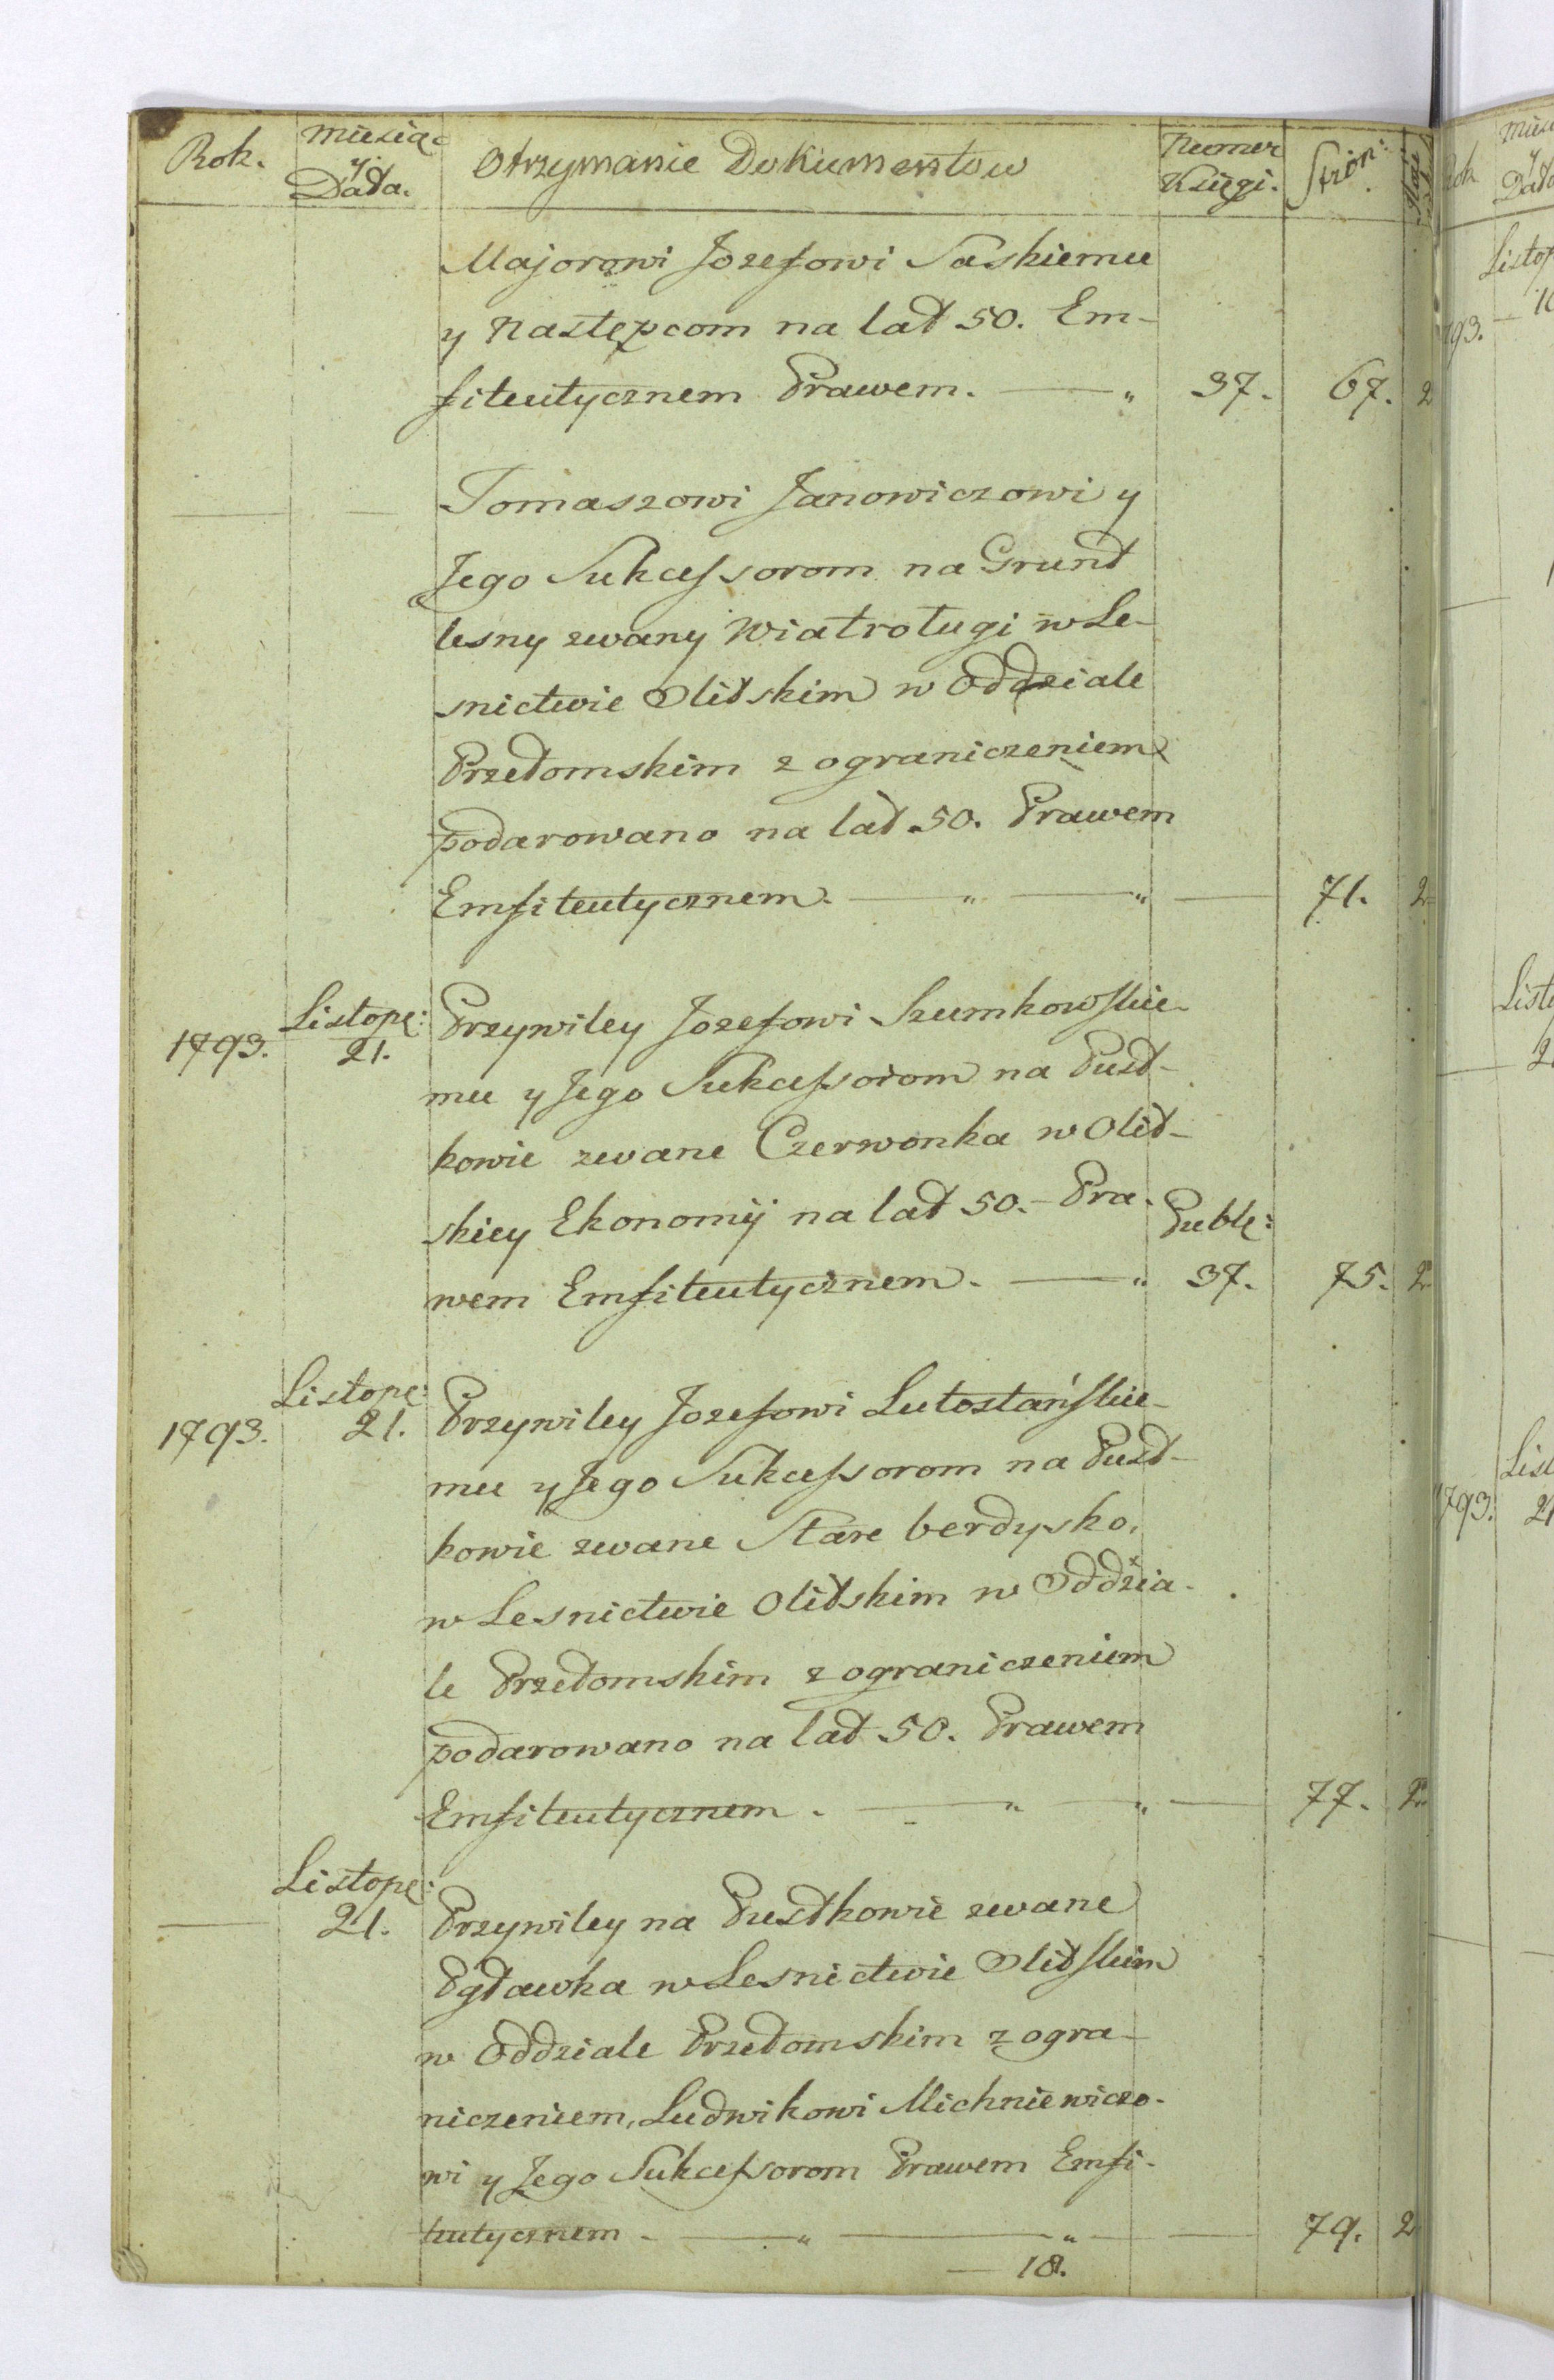 Rok. Miesiąc y Data. Otrzymanie Dokumentow Numer Księgi. Stron:
Majorowi Jozefowi Saskiemu
y Następcom na lat 50. Em-
fiteutycznem Prawem. — „ 37. 67. 2
Tomaszowi Janowiczowi y
Jego Sukcessorom na Grunt
lesny zwany Wiatroługi w Le-
snictwie Olitskim w Oddziale
Przełomskim z ograniczeniem
podarowano na lat 50. Prawem
Emfiteutycznem. — „ — „ — 71. 2
1793. Listop: 21. Przywiley Jozefowi Szumkowskie-
mu y Jego Sukcessorom na Pust-
kowie zwane Czerwonka w Olit-
skiey Ekonomij na lat 50. – Pra- Publ:
wem Emfiteutycznem. — „ 37. 75. 2
1793. Listop: 21. Przywiley Jozefowi Lutostańskie-
mu y Jego Sukcessorom na Pust-
kowie zwane Stare berdysko,
w Lesnictwie Olitskim w Oddzia-
le Przełomskim z ograniczeniem
podarowano na lat 50. Prawem
Emfiteutycznem. — „ — „ — 77. 2
— Listop: 21. Przywiley na Pustkowie zwane
w Lesnictwie Olitskim
w Oddziale Przełomskim z ogra-
niczeniem, Ludwikowi Michniewiczo-
wi y Jego Sukcessorom Prawem Emfi-
teutycznem — „ — „ — 79. 2
— 18.